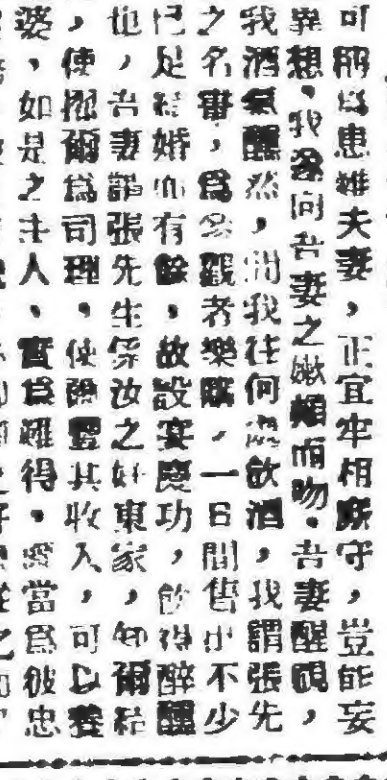 可稱為患難夫妻，正宜牢相厮守，豈能妄
異想。我遂向吾妻之嫩頰而吻。吾妻醒覺，
我酒氣醺然，問我往何處飲酒，我謂張先
之名畫，為參觀者樂購，一日間售出不少
已足結婚而有餘，故設宴慶功，飲得醉醺
也，吾妻謂張先生係汝之好東家，知爾結
，使擢爾為司理，使爾豐其收入，可以養
婆，如是之主人，實為難得。當為彼忠